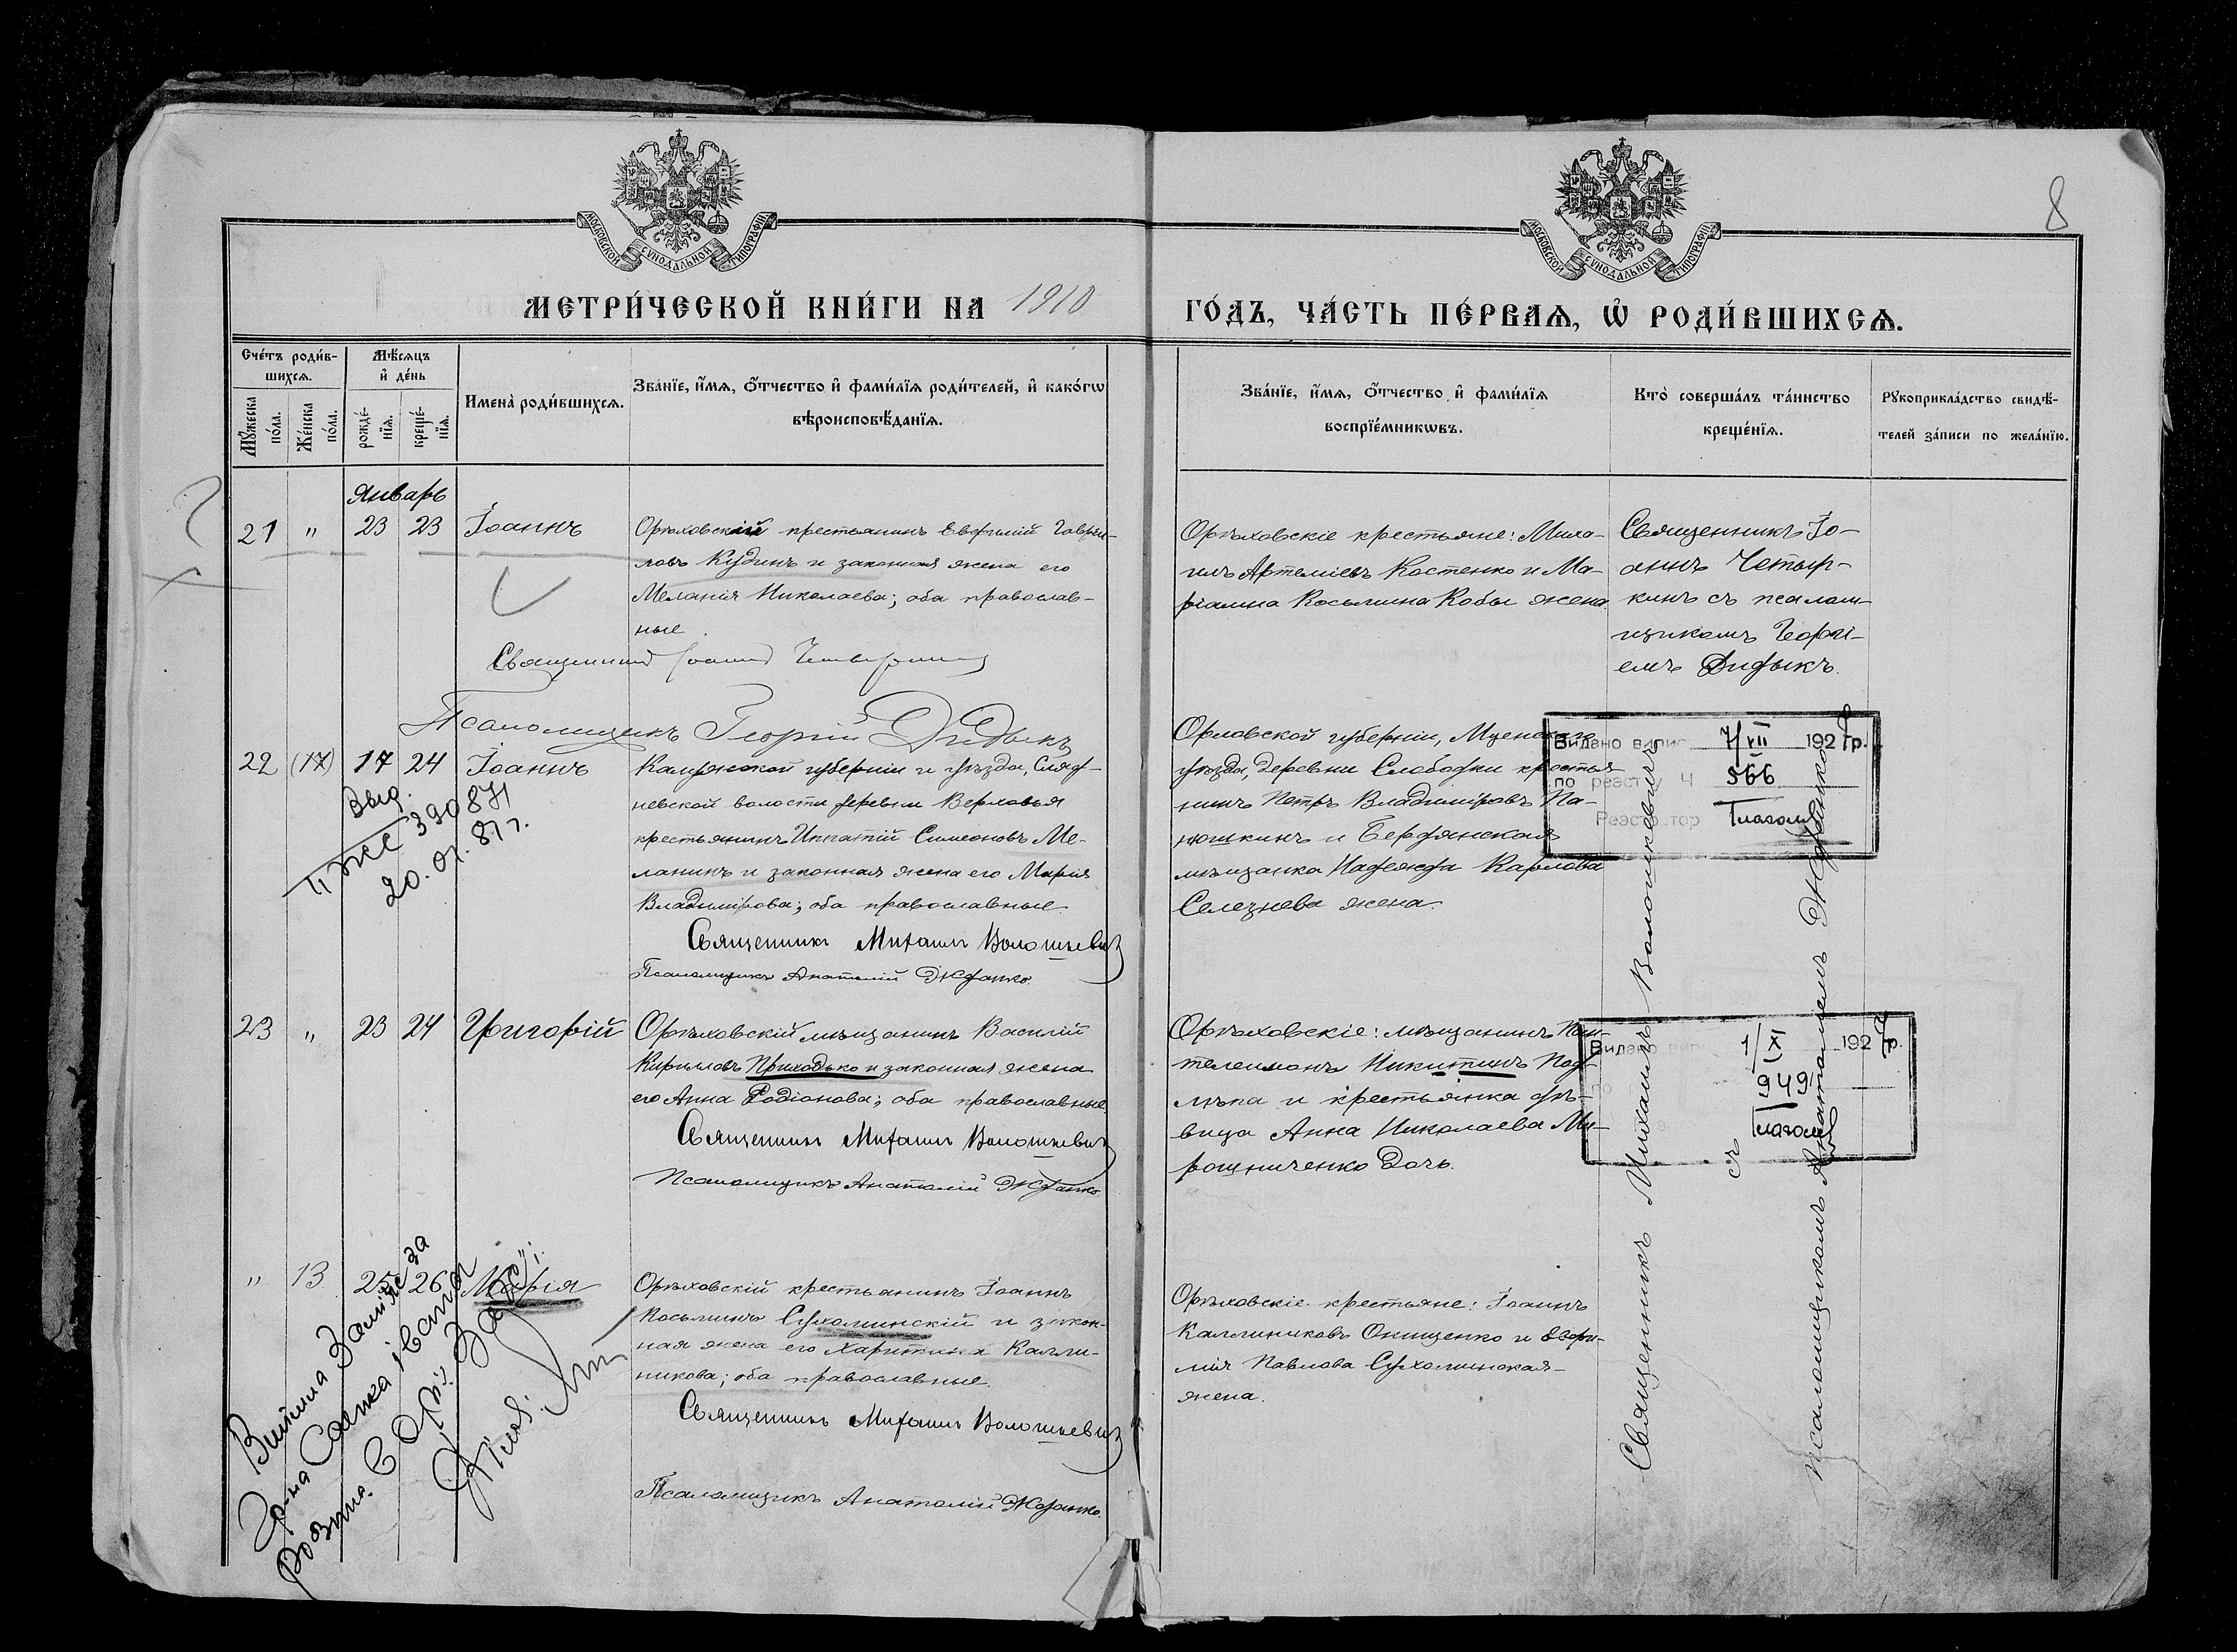 МОСКОВСКОЙ СѴНОДАЛЬНОЙ ТИПОГРАФІИ
МОСКОВСКОЙ СѴНОДАЛЬНОЙ ТИПОГРАФІИ
8
МЕТРИ́ЧЕСКОЙ КНИ́ГИ НА 1910
ГО́ДЪ, ЧА́СТЬ ПЕ́РВАѦ, Ѡ҆ РОДИ́ВШИХСѦ.
Сче́тъ роди́в-
шихсѧ.
Мꙋ́жеска по́ла.
Же́нска по́ла.
Мѣ́сѧцъ
и҆ де́нь
рожде́-нїѧ.
креще́-нїѧ.
Имена̀ роди́вшихсѧ.
Зва́нїе, и҆́мѧ, ѻ҆́тчество и҆ фами́лїѧ роди́телей, и҆ како́гѡ
вѣроисповѣ́данїѧ.
Зва́нїе, и҆́мѧ, ѻ҆́тчество и҆ фами́лїѧ
воспрїе́мникѡвъ.
Кто̀ соверша́лъ та́инство
креще́нїѧ.
Рꙋкоприкла́дство свидѣ́-
телей за́писи по жела́нїю.
Январь
21 " 23 23 Іоаннъ
Орѣховскій крестьянинъ Евфимій Гаври-
ловъ Кудинъ и законная жена его
Меланія Николаева; оба православ-
ные.
Священникъ Іоаннъ Четыркинъ
Псаломщикъ Георгій Дидыкъ
Орѣховскіе крестьяне: Миха-
илъ Артеміевъ Костенко и Ма-
ріамна Косьмина Кобы жена.
Священникъ Іо-
аннъ Четыр-
кинъ съ псалом-
щикомъ Георгі-
емъ Дидыкъ.
22 (17) 17 24 Іоаннъ
выд.
390871
20. 01. 81 г.
Калужской губерніи и уѣзда,
невской волости деревни Верховья
крестьянинъ Ипатій Симеоновъ Ме-
ланинъ и законная жена его Марія
Владимірова; оба православные.
Священникъ Михаилъ Волошкевичъ
Псаломщикъ Анатолій Жданко.
Орловской губерніи, Мценскаго
уѣзда, деревни Слободки крестья-
нинъ Петръ Владиміровъ Па-
нюшкинъ и Бердянская
мѣщанка Надежда Карпова
Селезнева жена.
Видано випис 7/VII 192 гр.
по реэстру Ч 566
Реэстратор
23 " 23 24 Григорій
Орѣховскій мѣщанинъ Василій
Кирилловъ Приходько и законная жена
его Анна Родіонова; оба православные.
Священникъ Михаилъ Волошкевичъ
Псаломщикъ Анатолій Жданко
Орѣховскіе: мѣщанинъ Пан-
телеимонъ Никитинъ Под-
лѣпа и крестьянка дѣ-
вица Анна Николаева Ми-
рошниченко дочь.
Видано випис 1/XI 192 р.
949
" 13 25 26 Марія
Орѣховскій крестьянинъ Іоаннъ
Косьминъ Сухоминскій и закон-
ная жена его Харитина Калли-
никова; оба православные.
Священникъ Михаилъ Волошкевичъ
Псаломщикъ Анатолій Жданко.
Орѣховскіе крестьяне: Іоаннъ
Каллиниковъ Онищенко и Евфи-
мія Павлова Сухоминская-
жена.
Священникъ Михаилъ Волошкевичъ
съ
псаломщикомъ Анатоліемъ Жданко